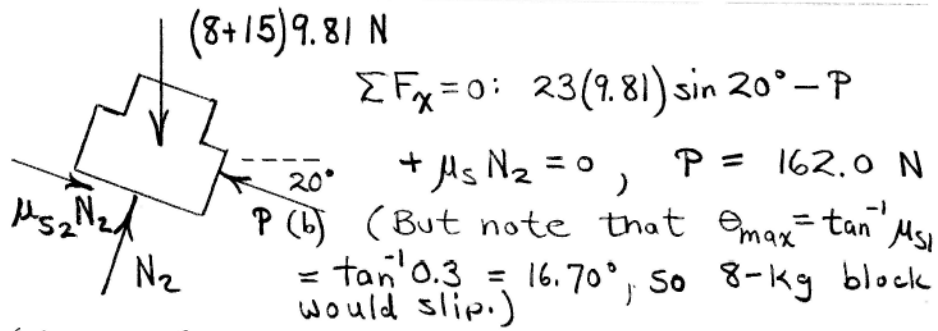 (8+15)9.81 N
ΣFₓ=0: 23(9.81) sin 20° − P
20° + μₛ N₂ = 0, P = 162.0 N
μₛ₂N₂ P (b) (But note that θmax = tan⁻¹ μₛ₁
N₂ = tan⁻¹ 0.3 = 16.70°, so 8-kg block
would slip.)